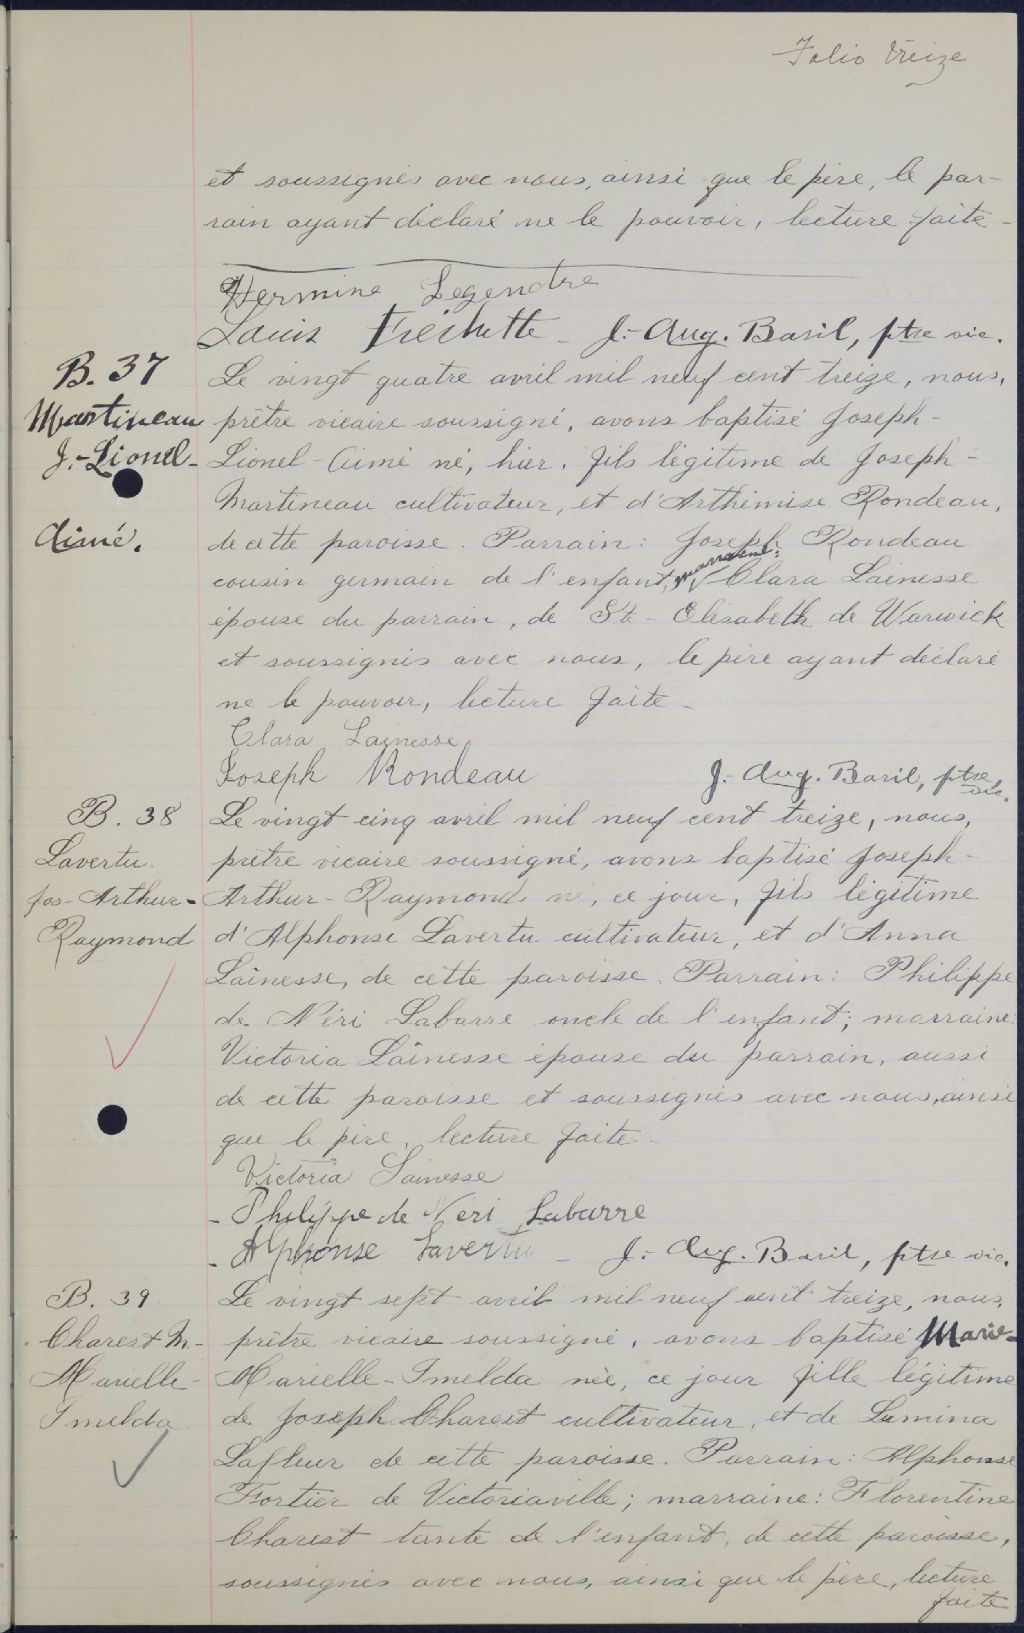 Folio treize
et soussignés avec nous, ainsi que le père, le par-
rain ayant déclaré ne le pouvoir, lecture faite -
Hermine Legendre
Louis Fréchette - J.- Aug. Baril, ptre vic.
B. 37
Martineau
J.-Lionel-
Aimé.
Le vingt quatre avril mil neuf cent treize, nous,
prêtre vicaire soussigné, avons baptisé Joseph-
Lionel-Aimé né, hier, fils légitime de Joseph-
Martineau cultivateur, et d'Arthémise Rondeau,
de cette paroisse. Parrain: Joseph Rondeau
cousin germain de l'enfant, marraine: Clara Lainesse
épouse du parrain, de Ste-Elisabeth de Warwick
et soussignés avec nous, le père ayant déclaré
ne le pouvoir, lecture faite -
Clara Lainesse
Joseph Rondeau J.- Aug. Baril, ptre vic.
B. 38
Lavertu
Jos-Arthur-
Raymond
Le vingt cinq avril mil neuf cent treize, nous,
prêtre vicaire soussigné, avons baptisé Joseph-
Arthur-Raymond né, ce jour, fils légitime
d'Alphonse Lavertu cultivateur, et d'Anna
Laînesse, de cette paroisse. Parrain: Philippe
de Néri Labarre oncle de l'enfant; marraine:
Victoria Laînesse épouse du parrain, aussi
de cette paroisse et soussignés avec nous, ainsi
que le père, lecture faite -
Victoria Lainesse
- Philippe de Neri Labarre
- Alphonse Lavertu - J.- Aug. Baril, ptre vic.
B. 39
Charest M.-
Marielle-
Imelda
Le vingt sept avril mil neuf cent treize, nous,
prêtre vicaire soussigné, avons baptisé Marie-
Marielle-Imelda née, ce jour fille légitime
de Joseph Charest cultivateur, et de Lumina
Lafleur de cette paroisse. Parrain: Alphonse
Fortier de Victoriaville; marraine: Florentine
Charest tante de l'enfant, de cette paroisse,
soussignés avec nous, ainsi que le père, lecture
faite